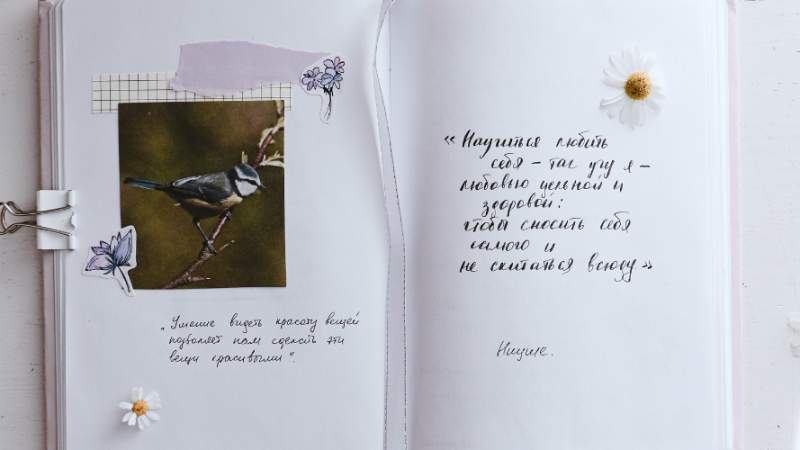 „Умение видеть красоту вещей
позволяет нам сделать эти
вещи красивыми“.
«Научиться любить
себя – так учу я –
любовью цельной и
здоровой:
чтобы сносить себя
самого и
не скитаться всюду»
Ницше.